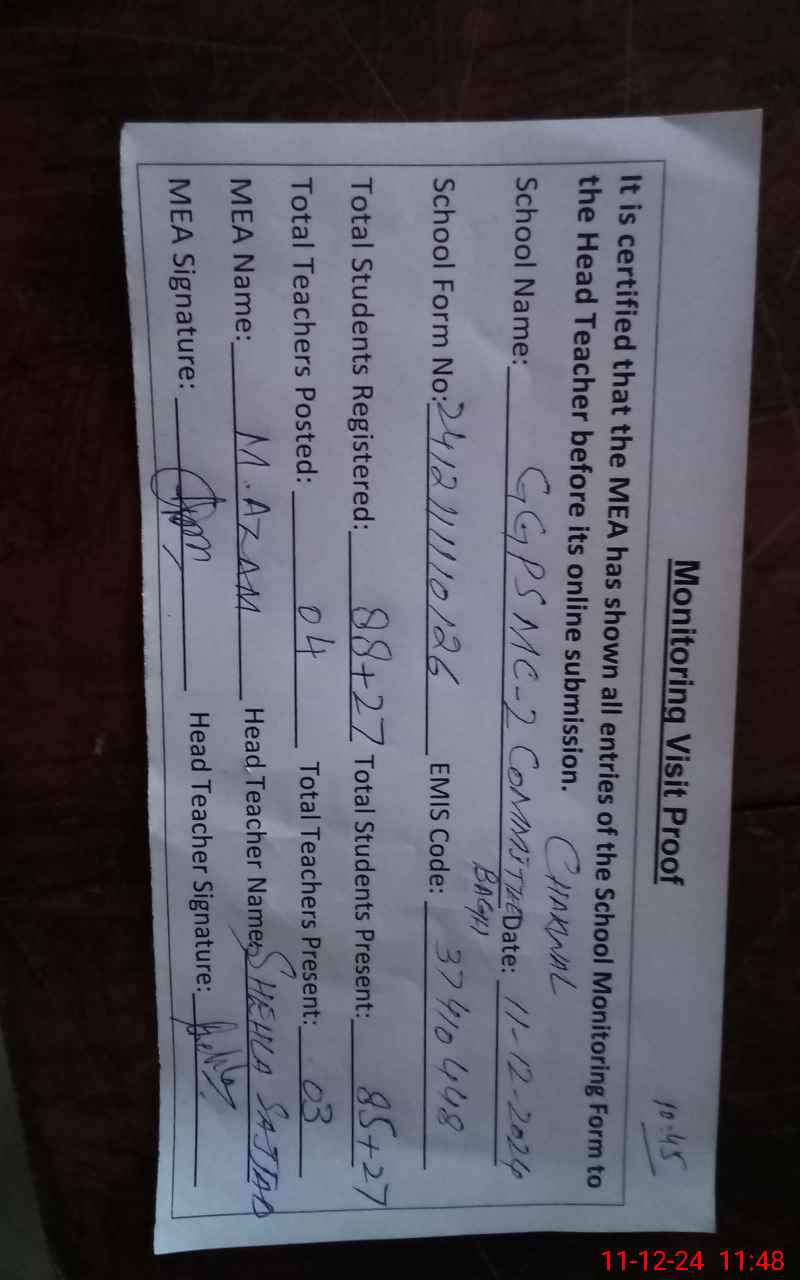 10:45
Monitoring Visit Proof
It is certified that the MEA has shown all entries of the School Monitoring Form to
the Head Teacher before its online submission.
CHAKWAL
School Name: GGPS MC-2 COMMITTEE Date: 11-12-2024
BAGH
School Form No: 2412111110126 EMIS Code: 37410448
Total Students Registered: 88+27 Total Students Present: 85+27
Total Teachers Posted: 04 Total Teachers Present: 03
MEA Name: M. AZAM Head Teacher Name: SHEHLA SAJJAD
MEA Signature: Head Teacher Signature:
11-12-24 11:48